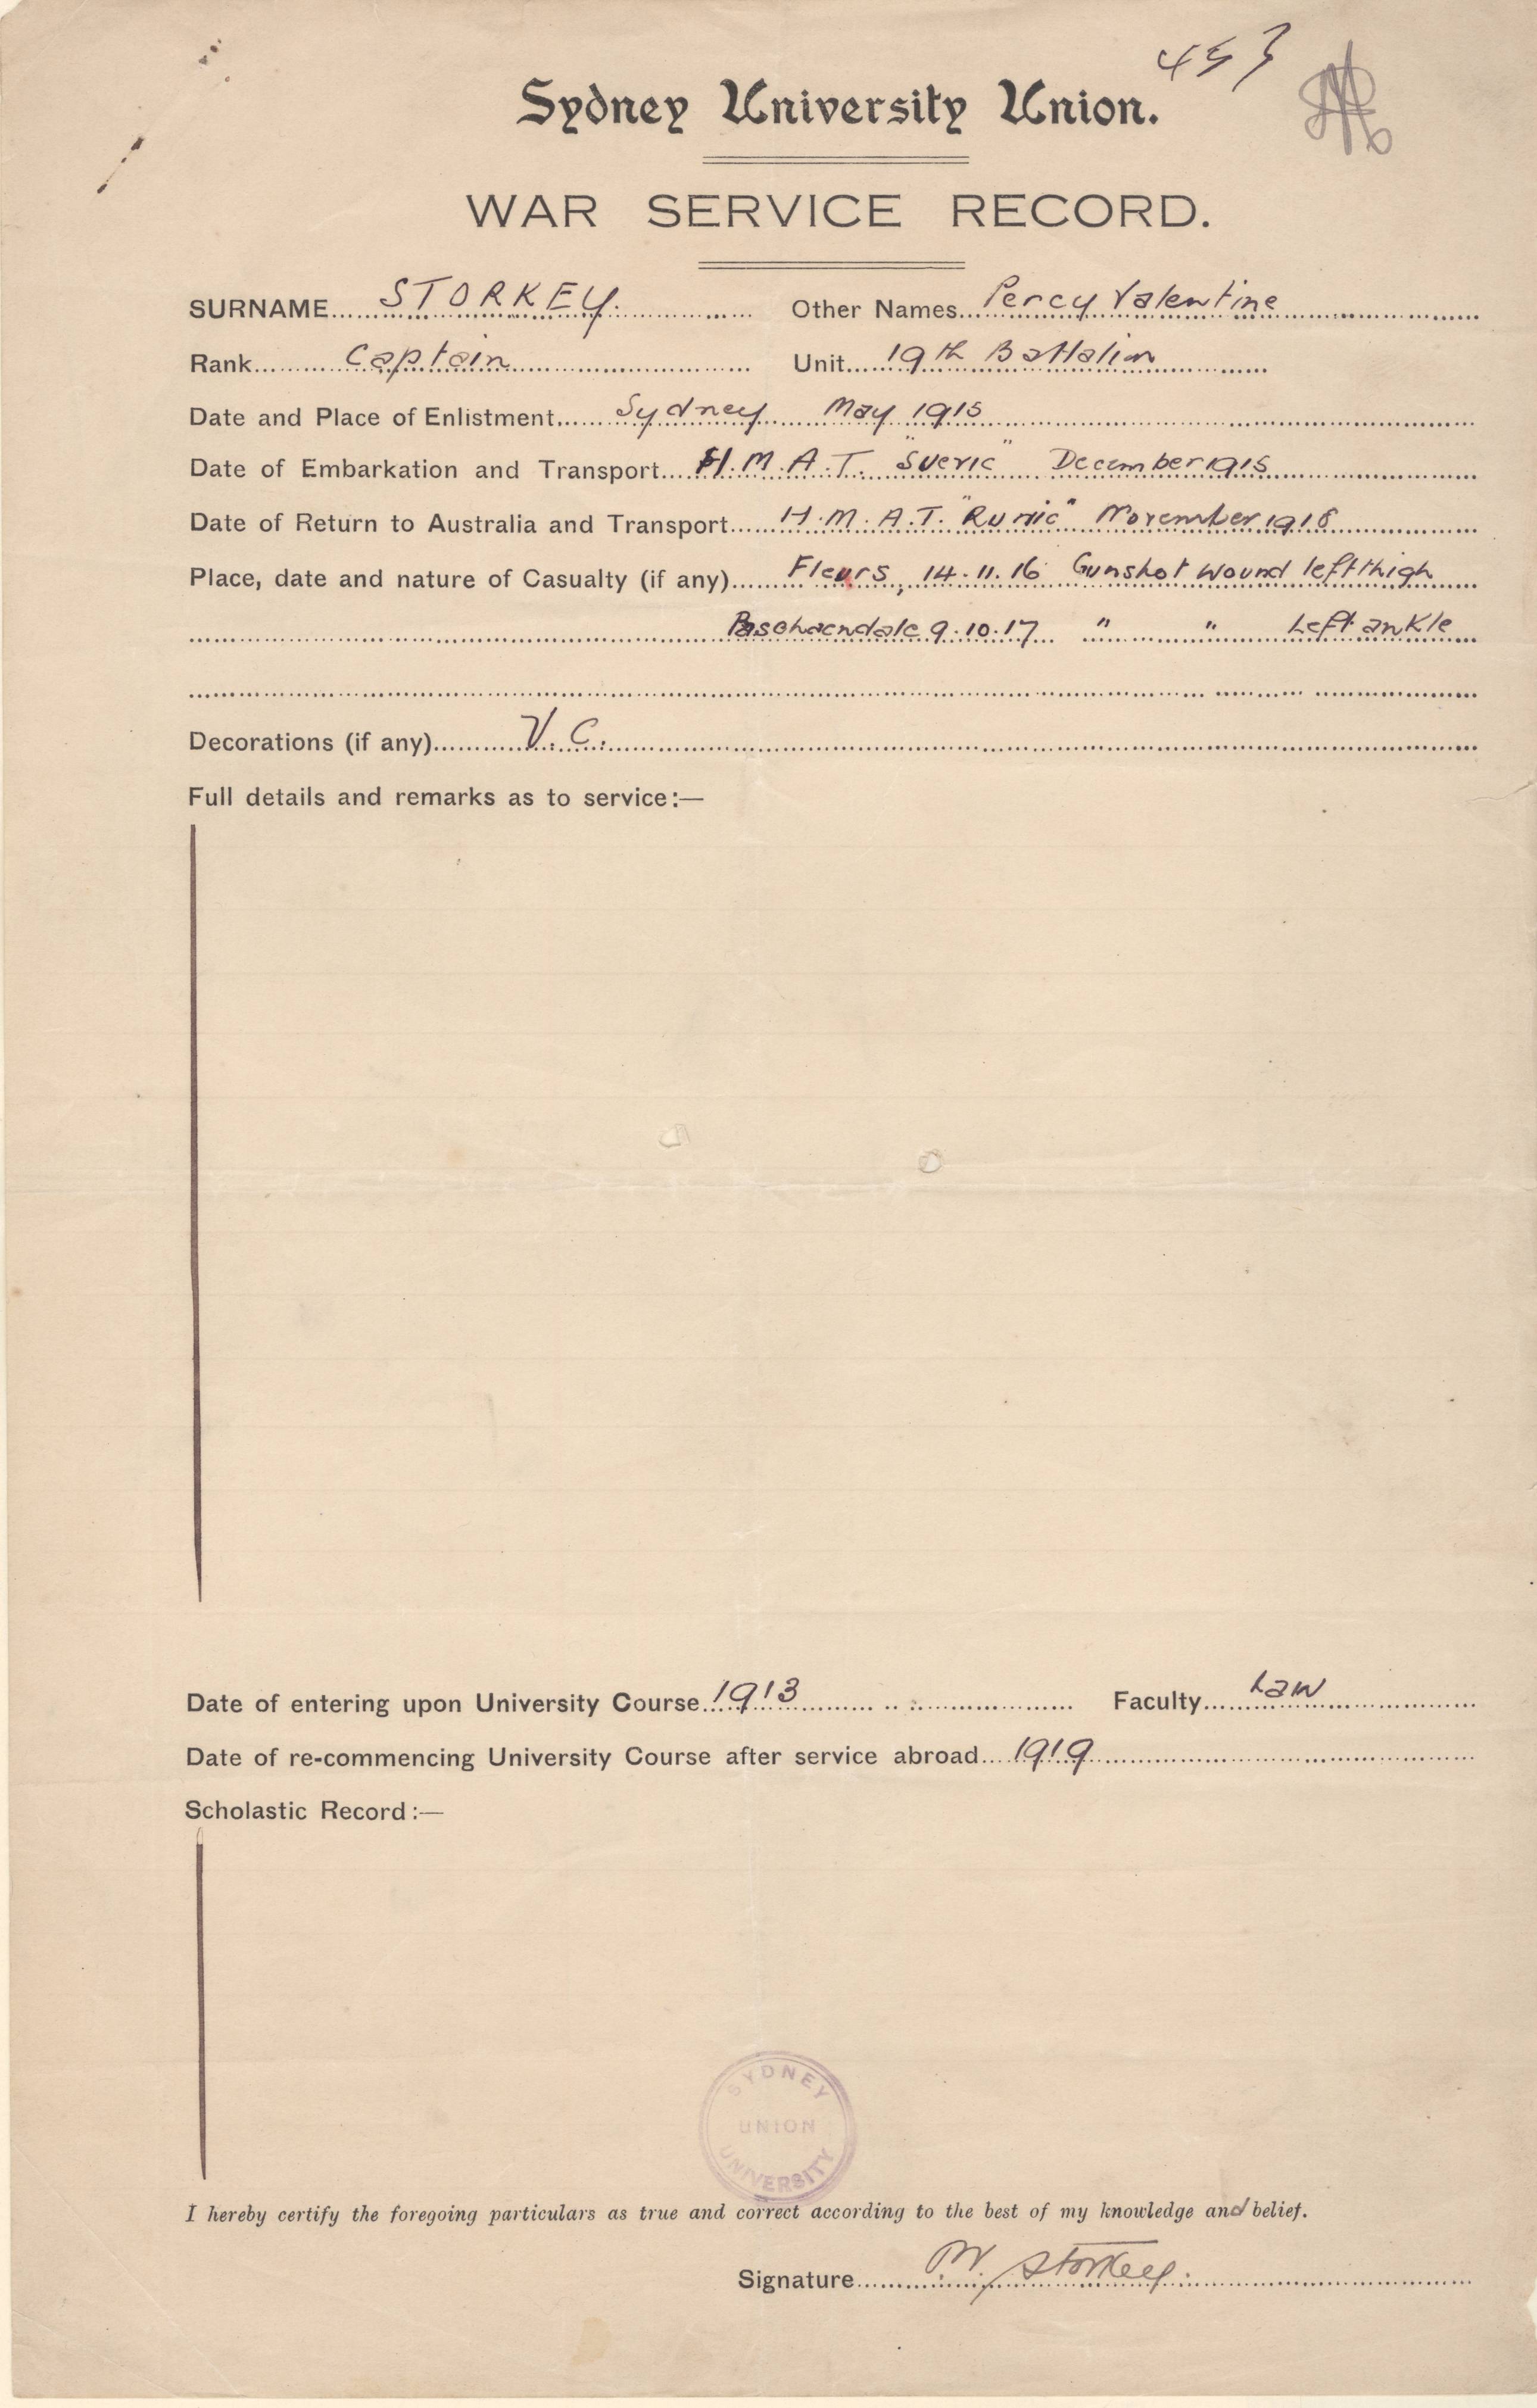 453
Sydney University Union.
WAR SERVICE RECORD.
SURNAME STORKEY. Other Names Percy Valentine
Rank Captain Unit 19th Battalion
Date and Place of Enlistment Sydney May 1915
Date of Embarkation and Transport H.M.A.T. "Suevic" December 1915
Date of Return to Australia and Transport H.M.A.T. "Runic" November 1918
Place, date and nature of Casualty (if any) Fleurs, 14.11.16 Gunshot wound left thigh
Paschaendale 9.10.17 " " Left ankle
Decorations (if any) V.C.
Full details and remarks as to service:—
Date of entering upon University Course 1913 Faculty Law
Date of re-commencing University Course after service abroad 1919
Scholastic Record:—
SYDNEY
UNION
UNIVERSITY
I hereby certify the foregoing particulars as true and correct according to the best of my knowledge and belief.
Signature Storkey.